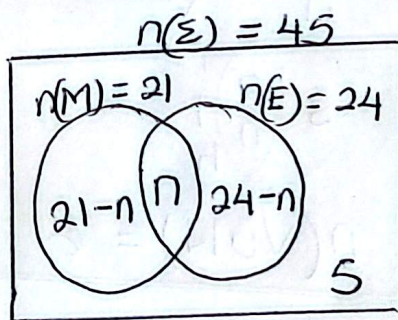 n(Σ) = 45
n(M) = 21 n(E) = 24
21-n n 24-n
5